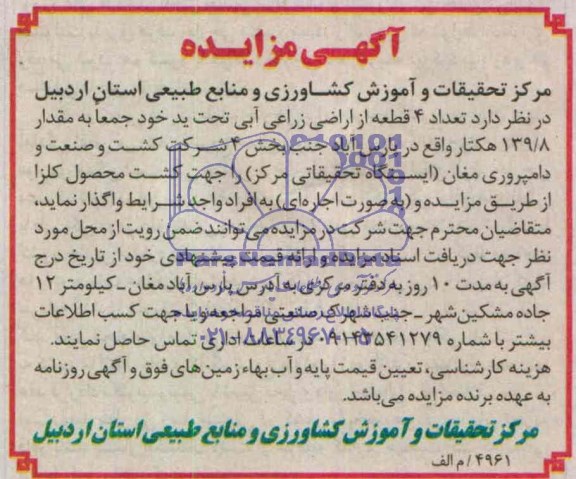 آگهـی مزایـده
مرکز تحقیقات و آموزش کشـاورزی و منابع طبیعی استان اردبیل
در نظر دارد تعداد ۴ قطعه از اراضی زراعی آبی تحت ید خود جمعاً به مقدار
۱۳۹/۸ هکتار واقع در پارس آباد جنب بخش ۴ شرکت کشت و صنعت و
دامپروری مغان (ایستگاه تحقیقاتی مرکز) را جهت کشت محصول کلزا
از طریق مزایده و (به صورت اجاره ای) به افراد واجد شرایط واگذار نماید،
متقاضیان محترم جهت شرکت در مزایده می توانند ضمن رویت از محل مورد
نظر جهت دریافت اسناد مزایده و ارائه قیمت پیشنهادی خود از تاریخ درج
آگهی به مدت ۱۰ روز به دفتر مرکزی به آدرس پارس آباد مغان - کیلومتر ۱۲
جاده مشکین شهر - جنب شهرک صنعتی مراجعه و یا جهت کسب اطلاعات
بیشتر با شماره ۰۹۱۴۳۵۴۱۲۷۹ در ساعات اداری تماس حاصل نمایند.
هزینه کارشناسی، تعیین قیمت پایه و آب بهاء زمین های فوق و آگهی روزنامه
به عهده برنده مزایده می باشد.
مرکز تحقیقات و آموزش کشاورزی و منابع طبیعی استان اردبیل
۴۹۶۱ / م الف